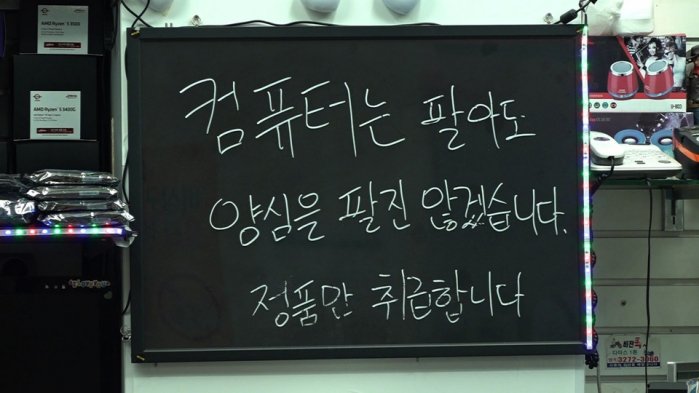 AMD Ryzen 5 3500
AMD Ryzen 5 3400G
컴퓨터는 팔아도
양심을 팔진 않겠습니다.
정품만 취급합니다
U-903
3272-3060